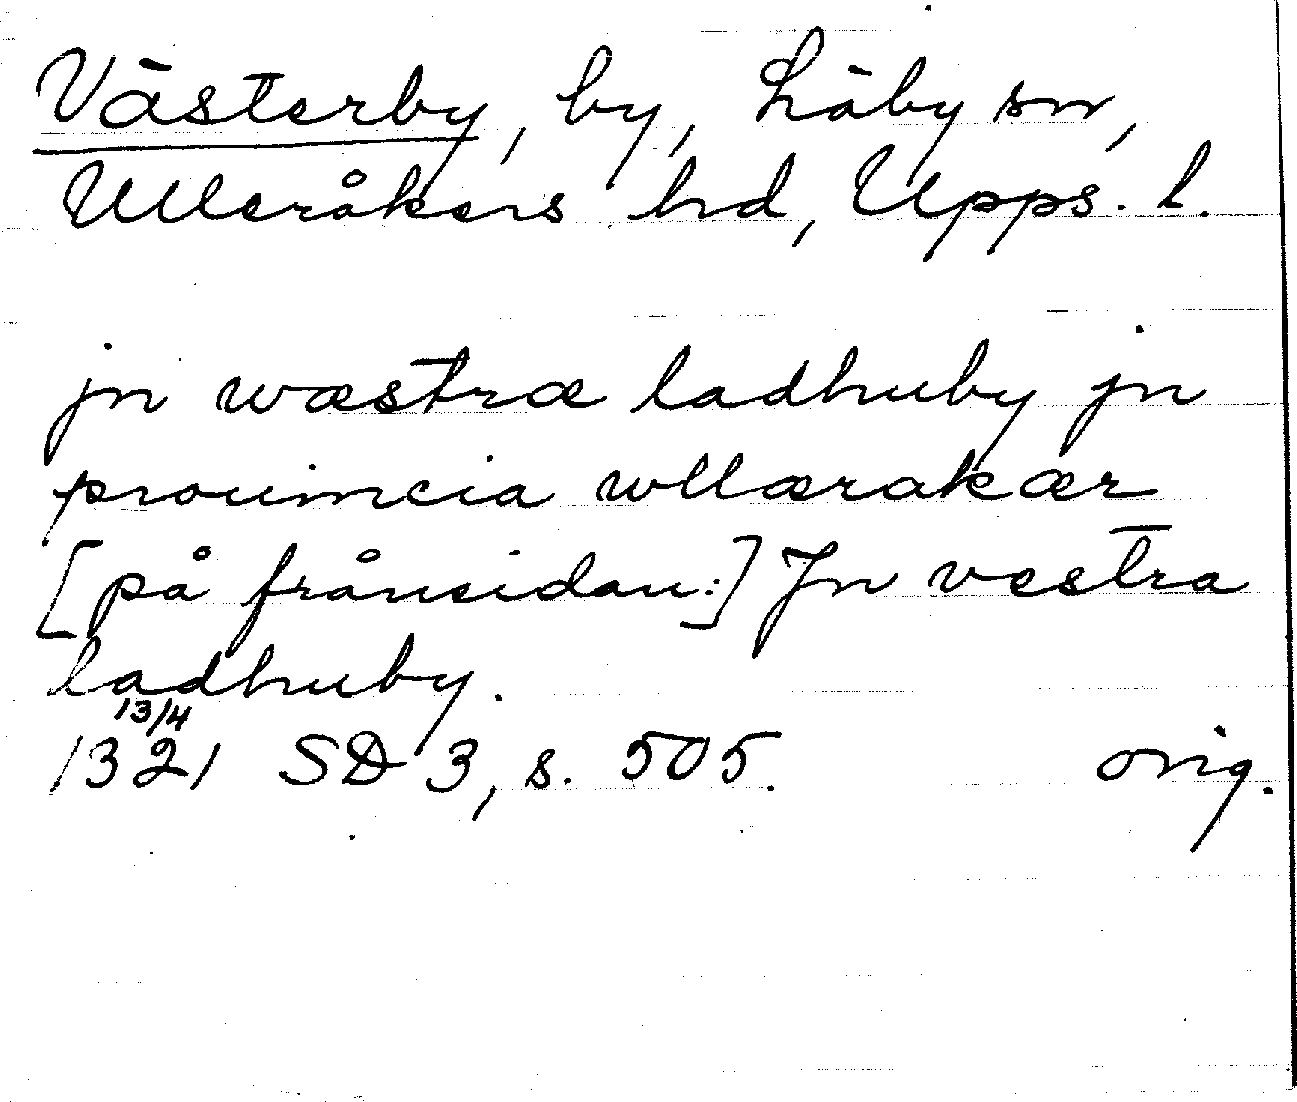 Västerby, by, Läby sn,
Ulleråkers hd, Upps. l.
jn wæstræ ladhuby jn
prouincia wllærakær
[på frånsidan:] Jn vestra
ladhuby.
13/4
1321 SD 3, s. 505. orig.